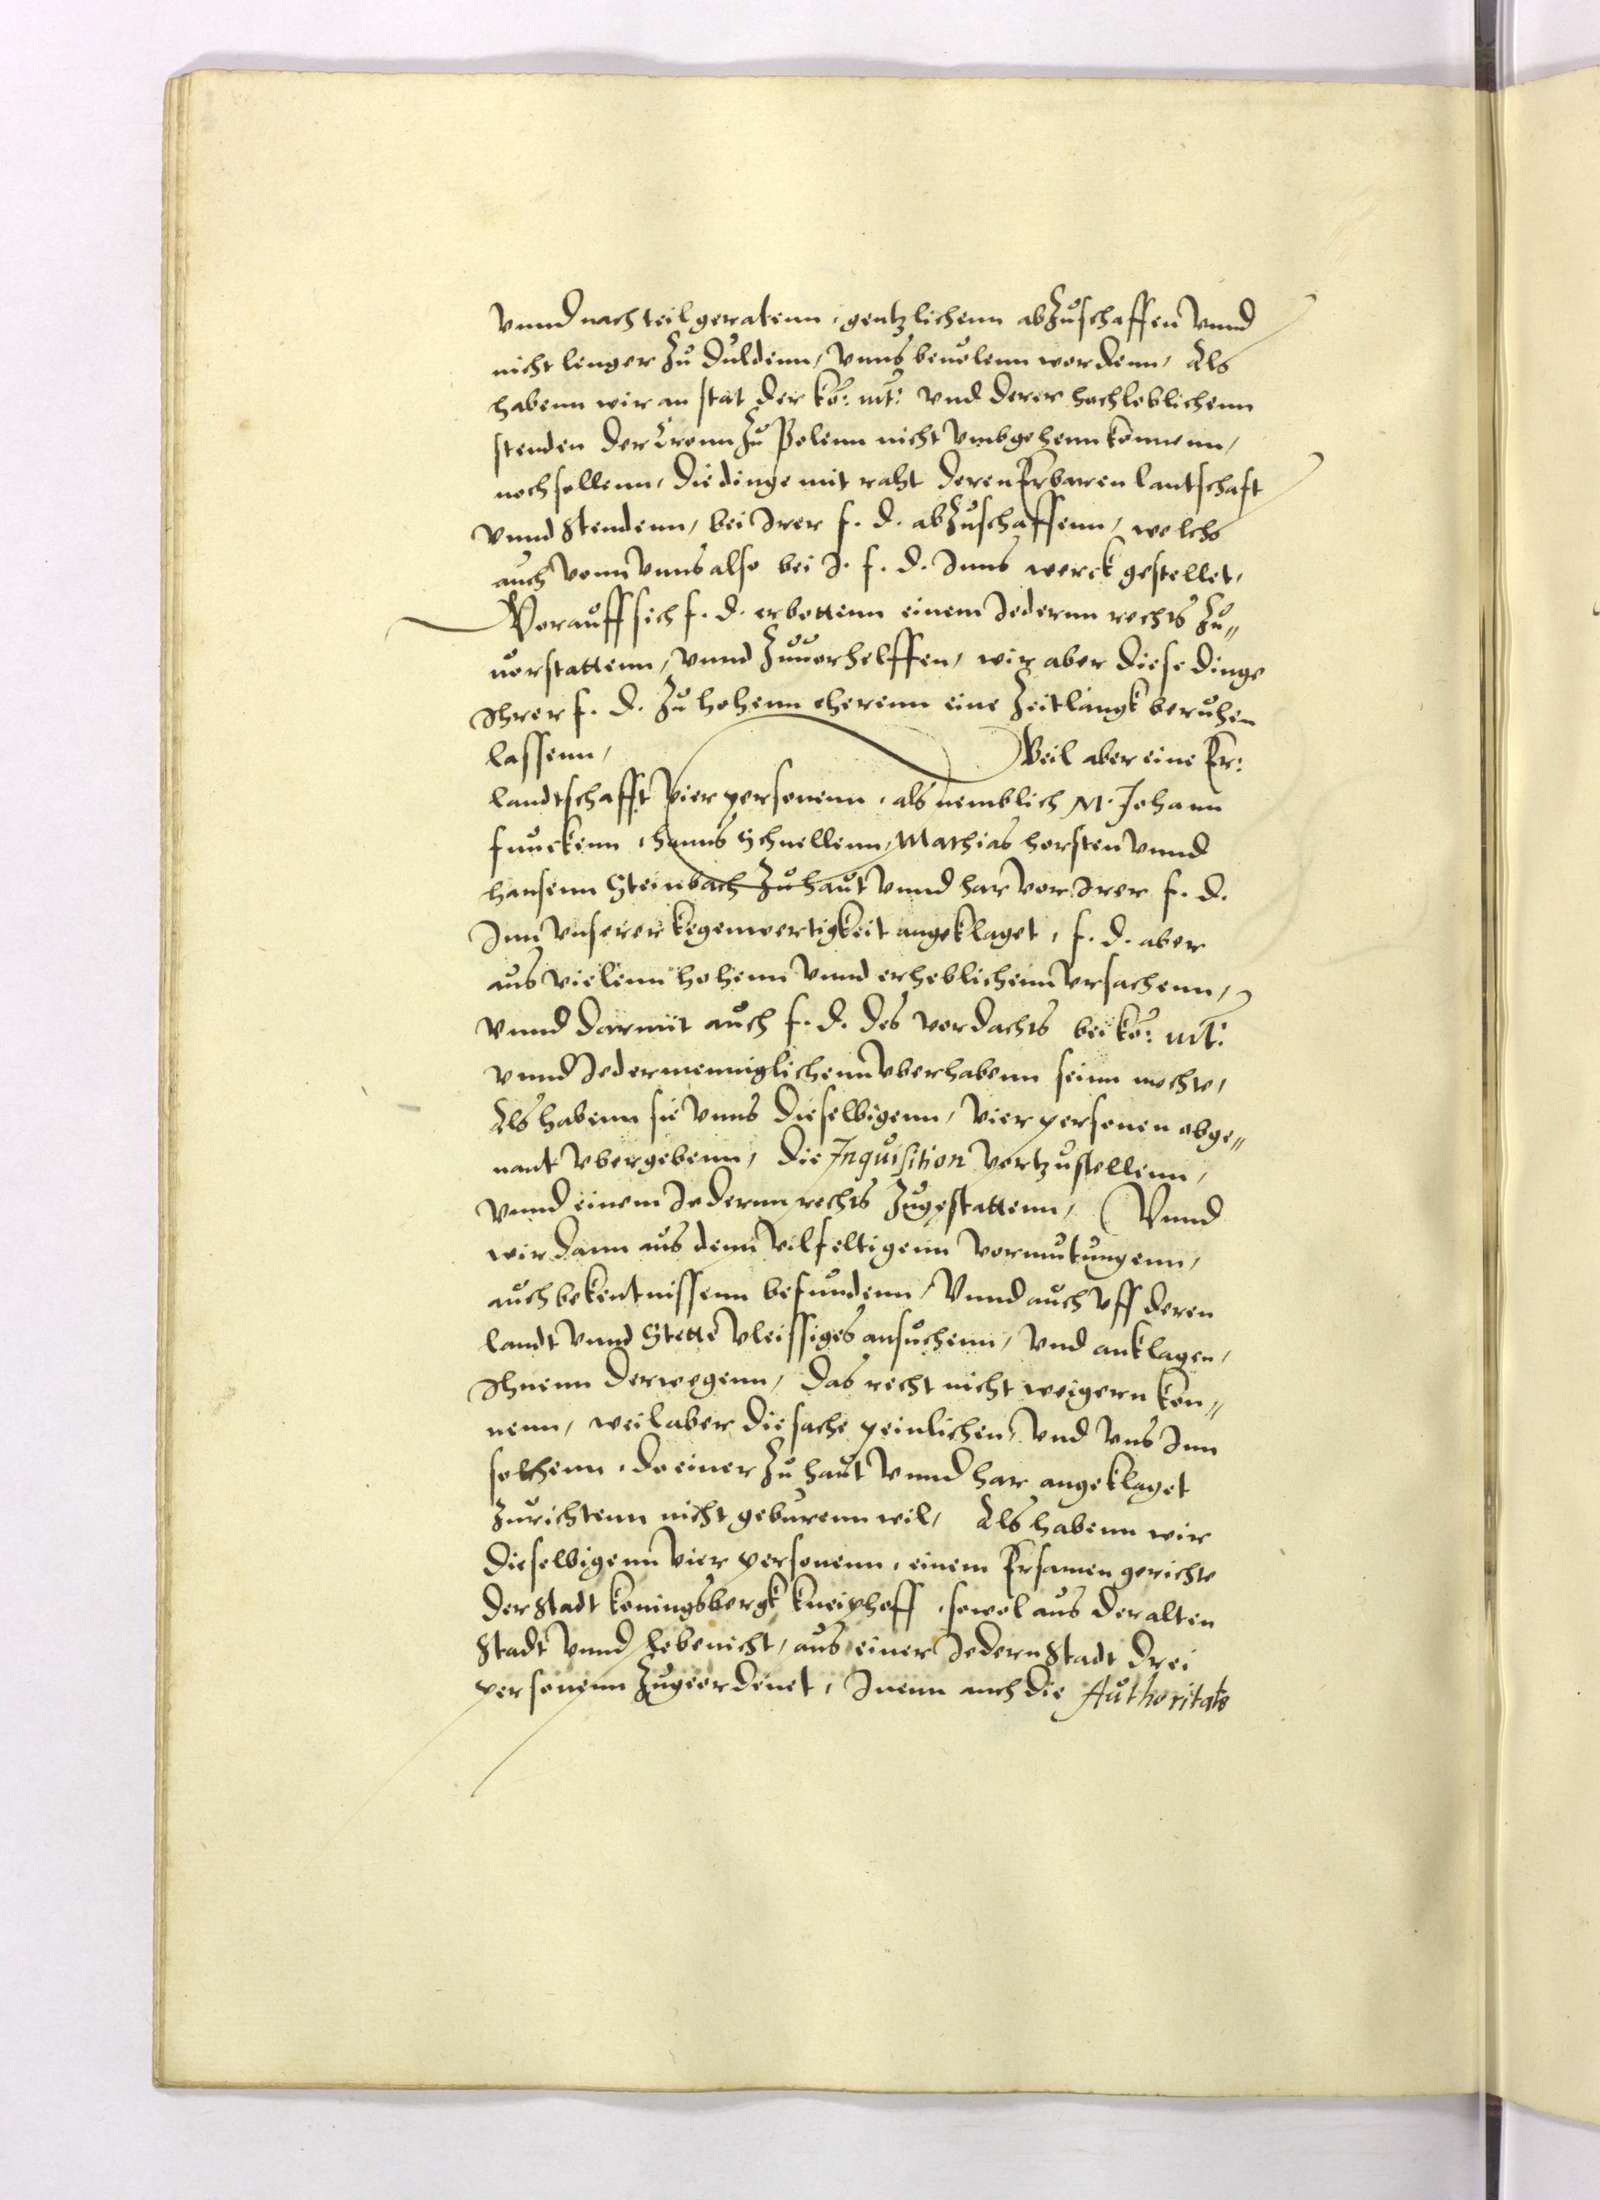 vnnd nachteil geratenn, gentzlichenn abZuschaffen vnnd
nicht lenger Zu duldenn, vnns beuolenn wordenn, Als
habenn wir an stat der ko: mt: vnd derer hochloblichenn
stenden der Cronn Zu Polenn nicht vmbgehenn konnenn,
noch sollenn, die dinge mit raht deren Erbaren lantschaft
vnnd Stendenn, bei Irer f. d. abZuschaffenn, welchs
auch vonn vnns also bei I. f. d. Inns werck gestellet,
Worauff sich f. d. erbottenn einem Iedernn rechts Zu„
uorstattenn, vnnd Zuuorhelffen, wir aber diese dinge
Ihrer f. d. Zu hohenn eherenn eine Zeitlangk beruhen
lassenn, Weil aber eine Er:
landtschafft vier personenn, als nemblich M. Johann
funckenn, hanns Schnellenn, Mathias horsten vnnd
hansenn Steinbach Zu haut vnnd har vor Irer f. d.
Inn vnserer kegenwertigkeit angeklaget, f. d. aber
aus vielenn hohenn vnnd erheblichenn vrsachenn,
vnnd darmit auch f. d. des vordachts bei ko: mt:
vnnd Iedermenniglichenn vberhabenn seinn mochte,
Als habenn sie vnns dieselbigenn, vier personen obge„
nant vbergebenn, die Inquisition vortzustellenn,
vnnd einem Iedernn rechts Zugestattenn, Vnnd
wir dann aus denn vilfeltigenn vormutungenn,
auch bekentnissenn befundenn, Vnnd auch vff deren
landt vnnd Stette vleissiges ansuchenn, vnd anklagen,
Ihnenn derwegenn, das recht nicht weigern kon„
nenn, weil aber die sache peinlichen, vnd vns Inn
solchenn, do einer Zu haut vnnd har angeklaget
Zurichtenn nicht geburenn wil, Als habenn wir
dieselbigenn vier personenn, einem Ersamen gerichte
der Stadt konningsbergk kneiphoff, sowol aus der alten
Stadt vnnd lebenicht, aus einer Iedern Stadt drei
personenn Zugeordenet, Inenn auch die Authoritate